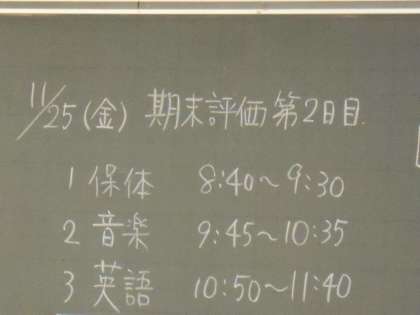 11/25(金) 期末評価第2日目
1 保体 8:40～9:30
2 音楽 9:45～10:35
3 英語 10:50～11:40